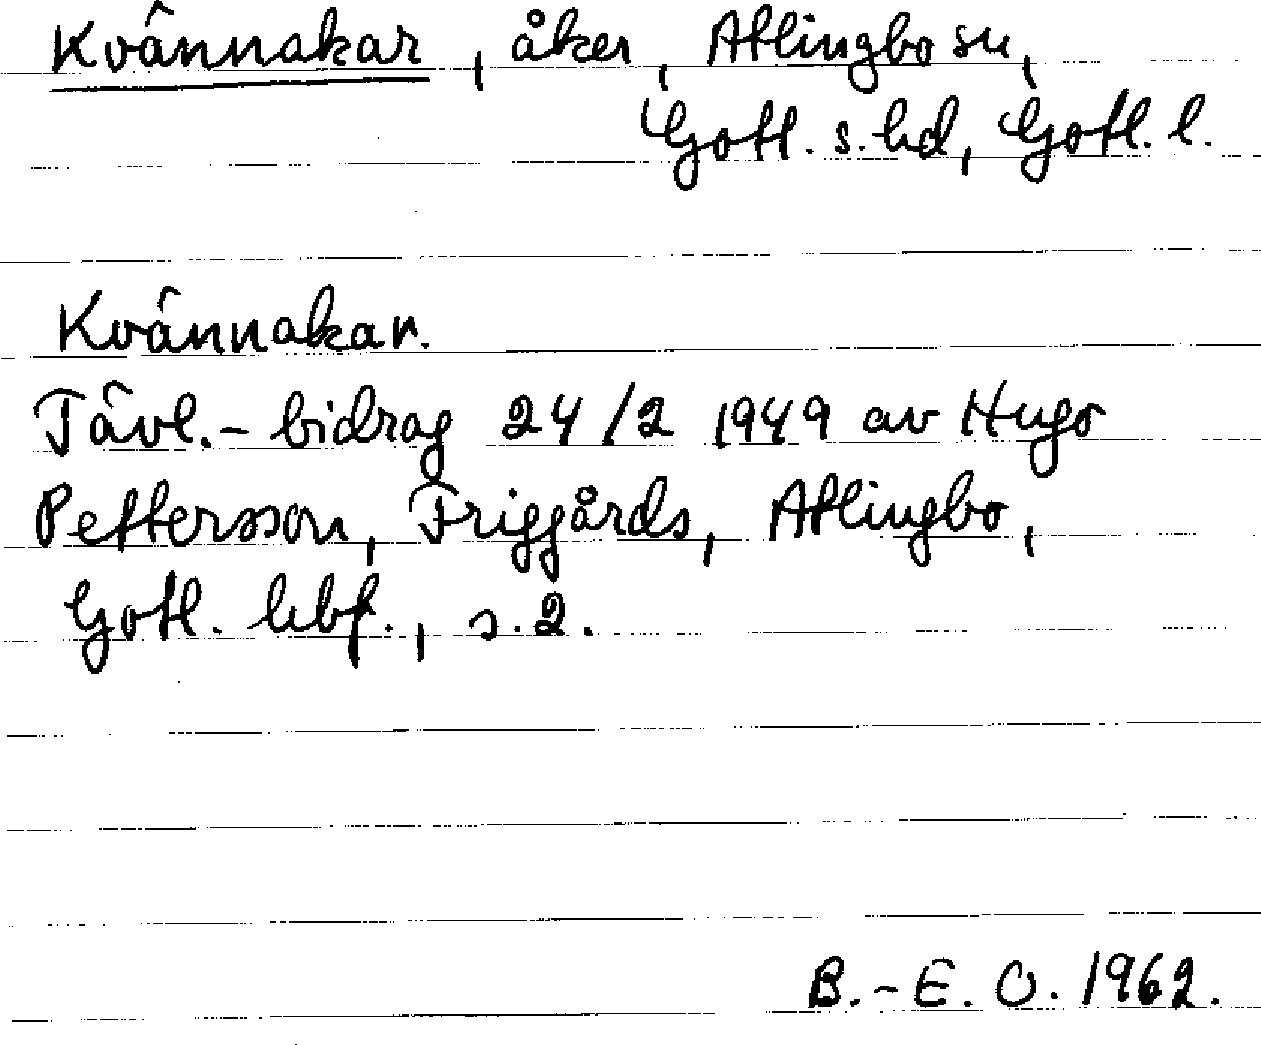 Kvännakar, åker, Atlingbo sn,
Gotl. s. hd, Gotl. l.
Kvännakar.
Tävl.-bidrag 24/2 1949 av Hugo
Pettersson, Friggårds, Atlingbo,
Gotl. hbf., s. 2.
B.-E. O. 1962.